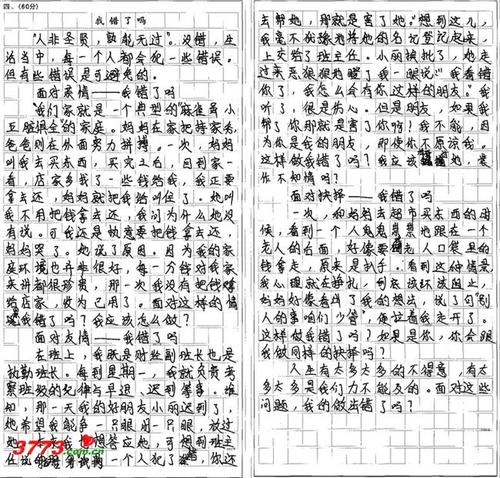 四、(60分)
我错了吗
"人非圣贤，孰能无过"。没错，生
活当中，每一个人都会犯一些错误。
但有些错误是可避免的。
面对亲情——我错了吗
"我们家就是一个典型的"麻雀虽小
五脏俱全"的家庭。妈妈在家把持家务，
爸爸则在外面努力拼搏。一次，妈妈
叫我去买东西，买完之后，回到家一
看，店家多找了一些钱给我，我正要
拿去还，妈妈就把我给叫住了。她叫
我不用把钱拿去还，我问为什么她没
有说。可我还是执意要把钱拿去还，
妈妈哭了。她说了原因。因为我的家
庭环境也并非很好，每一分钱对我家
来讲都很珍贵，那一次我没有把钱
给店家，收为己用了。面对这样的情
我错了吗？我应该怎么做？
面对友情——我错了吗
在班上，我既是财经副班长也是
执勤班长。每到星期一，我就负责考
察班级的纪律与早退、迟到等事。谁
知，那一天我的好朋友小丽迟到了，
她希望我能睁一只眼闭一只眼，放过
她一次。我想答应她，可想到班主
任说 一个人犯了 ，你还
去帮她，那就是害了她。"想到这儿，
我毫不犹豫地将她的名记登记起来，
上交给了班主任。小丽被批了，她走
过来恶狠狠地瞪了我一眼说："我看错
你了，我怎么会有你这样的朋友。"我
听了，很是伤心。但是朋友，如果我
帮了你那就是害了你啊？我不能，因
为你是我的朋友，那使你不原谅我。
这样做我错了吗？我应该 她，是
你不知情吗？
面对抉择——我错了吗
一次，和妈妈去超市买东西的时
候，看到一个人鬼鬼祟祟地跟在一个
老人的后面，好像要 老人口袋里的
钱拿走，原来是扒手。看到这种情景
我心理就在挣扎，到底该不该阻止，
妈妈好像看穿了我的想法，说了句"别
人的事咱们少管"，便这着我走开了。
这样做我错了吗？如果是你，你会跟
我做同样的抉择吗？
人生有太多太多的不得意，有太
多太多是我们力不能及的。面对这些
问题，我的做出错了吗？
3773.com.cn